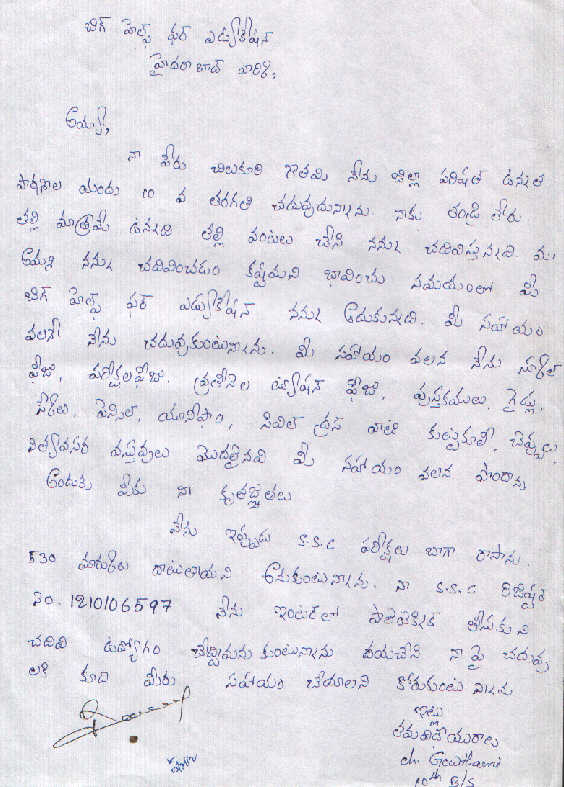 బిగ్ హెల్ప్ ఫర్ ఎడ్యుకేషన్
హైదరాబాద్ వారికి,
అయ్యా,
నా పేరు చిలుకూరి గౌతమి నేను జిల్లా పరిషత్ ఉన్నత
పాఠశాల యందు 10 వ తరగతి చదువుచున్నాను. నాకు తండ్రి లేరు
తల్లి మాత్రమే ఉన్నది తల్లి వంటలు చేసి నన్ను చదివిస్తున్నది. మా
అమ్మ నన్ను చదివించడం కష్టమని భావించు సమయంలో మీ
బిగ్ హెల్ప్ ఫర్ ఎడ్యుకేషన్ నన్ను ఆదుకున్నది. మీ సహాయం
వలనే నేను చదువుకుంటున్నాను. మీ సహాయం వలన నేను స్కూల్
ఫీజు, పరీక్షలఫీజు, ట్యూషన్ ఫీజు, పుస్తకములు, గైడ్లు,
పెన్సిల్, యూనిఫాం, సివిల్ డ్రెస్ వాటి కుట్టుకూలి, చెప్పులు,
నిత్యావసర వస్తువులు మొదలైనవి మీ సహాయం వలన పొందాను
అందుకు మీకు నా కృతజ్ఞతలు
నేను ఇప్పుడు S.S.C పరీక్షలు బాగా రాసాను.
530 మార్కులు దాటుతాయని అనుకుంటున్నాను. నా S.S.C రిజిష్టర్
No. 1210106597 నేను ఇంటర్‌లో తీసుకుని
చదివి ఉద్యోగం చేద్దామను కుంటున్నాను దయచేసి నా పై చదువు
లకి కూడ మీరు సహాయం చేయాలని కోరుకుంటున్నాను
ఇట్లు
తమ విధేయురాలు
ch. Gowthami
10th